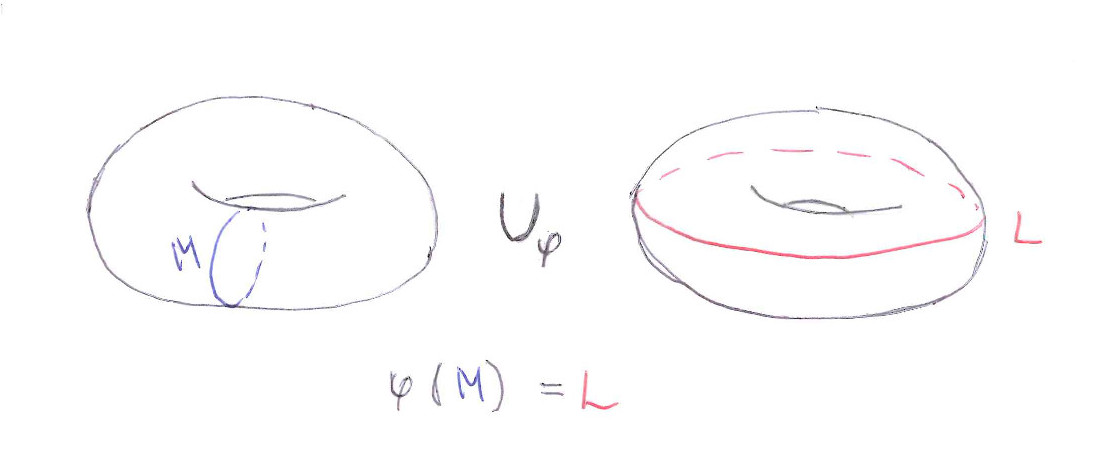 M
∪φ
L
φ(M) = L